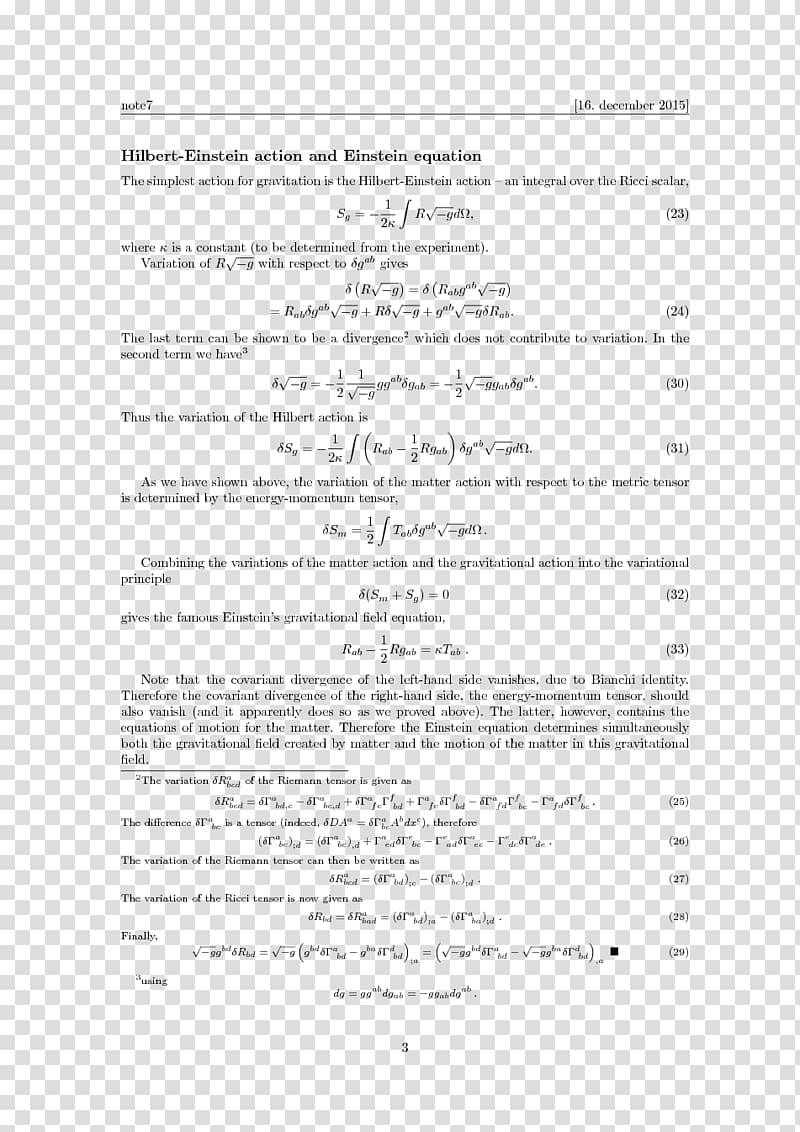 note7 [16. december 2015]
Hilbert-Einstein action and Einstein equation
The simplest action for gravitation is the Hilbert-Einstein action – an integral over the Ricci scalar,
S_g = −\frac{1}{2κ} ∫ R√−g dΩ, (23)
where κ is a constant (to be determined from the experiment).
Variation of R√−g with respect to δg^{ab} gives
δ (R√−g) = δ (R_{ab}g^{ab}√−g)
= R_{ab}δg^{ab}√−g + Rδ√−g + g^{ab}√−gδR_{ab}. (24)
The last term can be shown to be a divergence² which does not contribute to variation. In the
second term we have³
δ√−g = −\frac{1}{2} \frac{1}{√−g} gg^{ab}δg_{ab} = −\frac{1}{2}√−g g_{ab}δg^{ab}. (30)
Thus the variation of the Hilbert action is
δS_g = −\frac{1}{2κ} ∫ (R_{ab} − \frac{1}{2}Rg_{ab}) δg^{ab}√−g dΩ. (31)
As we have shown above, the variation of the matter action with respect to the metric tensor
is determined by the energy-momentum tensor,
δS_m = \frac{1}{2} ∫ T_{ab}δg^{ab}√−g dΩ .
Combining the variations of the matter action and the gravitational action into the variational
principle
δ(S_m + S_g) = 0 (32)
gives the famous Einstein's gravitational field equation,
R_{ab} − \frac{1}{2}Rg_{ab} = κT_{ab} . (33)
Note that the covariant divergence of the left-hand side vanishes, due to Bianchi identity.
Therefore the covariant divergence of the right-hand side, the energy-momentum tensor, should
also vanish (and it apparently does so as we proved above). The latter, however, contains the
equations of motion for the matter. Therefore the Einstein equation determines simultaneously
both the gravitational field created by matter and the motion of the matter in this gravitational
field.
²The variation δR^a_{bcd} of the Riemann tensor is given as
δR^a_{bcd} = δΓ^a_{bd,c} − δΓ^a_{bc,d} + δΓ^a_{fc}Γ^f_{bd} + Γ^a_{fc}δΓ^f_{bd} − δΓ^a_{fd}Γ^f_{bc} − Γ^a_{fd}δΓ^f_{bc} . (25)
The difference δΓ^a_{bc} is a tensor (indeed, δDA^a = δΓ^a_{bc}A^bdx^c), therefore
(δΓ^a_{bc})_{;d} = (δΓ^a_{bc})_{,d} + Γ^a_{ed}δΓ^e_{bc} − Γ^e_{ad}δΓ^a_{ec} − Γ^e_{dc}δΓ^a_{de} . (26)
The variation of the Riemann tensor can then be written as
δR^a_{bcd} = (δΓ^a_{bd})_{;c} − (δΓ^a_{bc})_{;d} . (27)
The variation of the Ricci tensor is now given as
δR_{bd} = δR^a_{bad} = (δΓ^a_{bd})_{;a} − (δΓ^a_{ba})_{;d} . (28)
Finally,
√−g g^{bd}δR_{bd} = √−g (g^{bd}δΓ^a_{bd} − g^{ba}δΓ^d_{bd})_{;a} = (√−g g^{bd}δΓ^a_{bd} − √−g g^{ba}δΓ^d_{bd})_{,a} ■ (29)
³using
dg = gg^{ab}dg_{ab} = −gg_{ab}dg^{ab} .
3